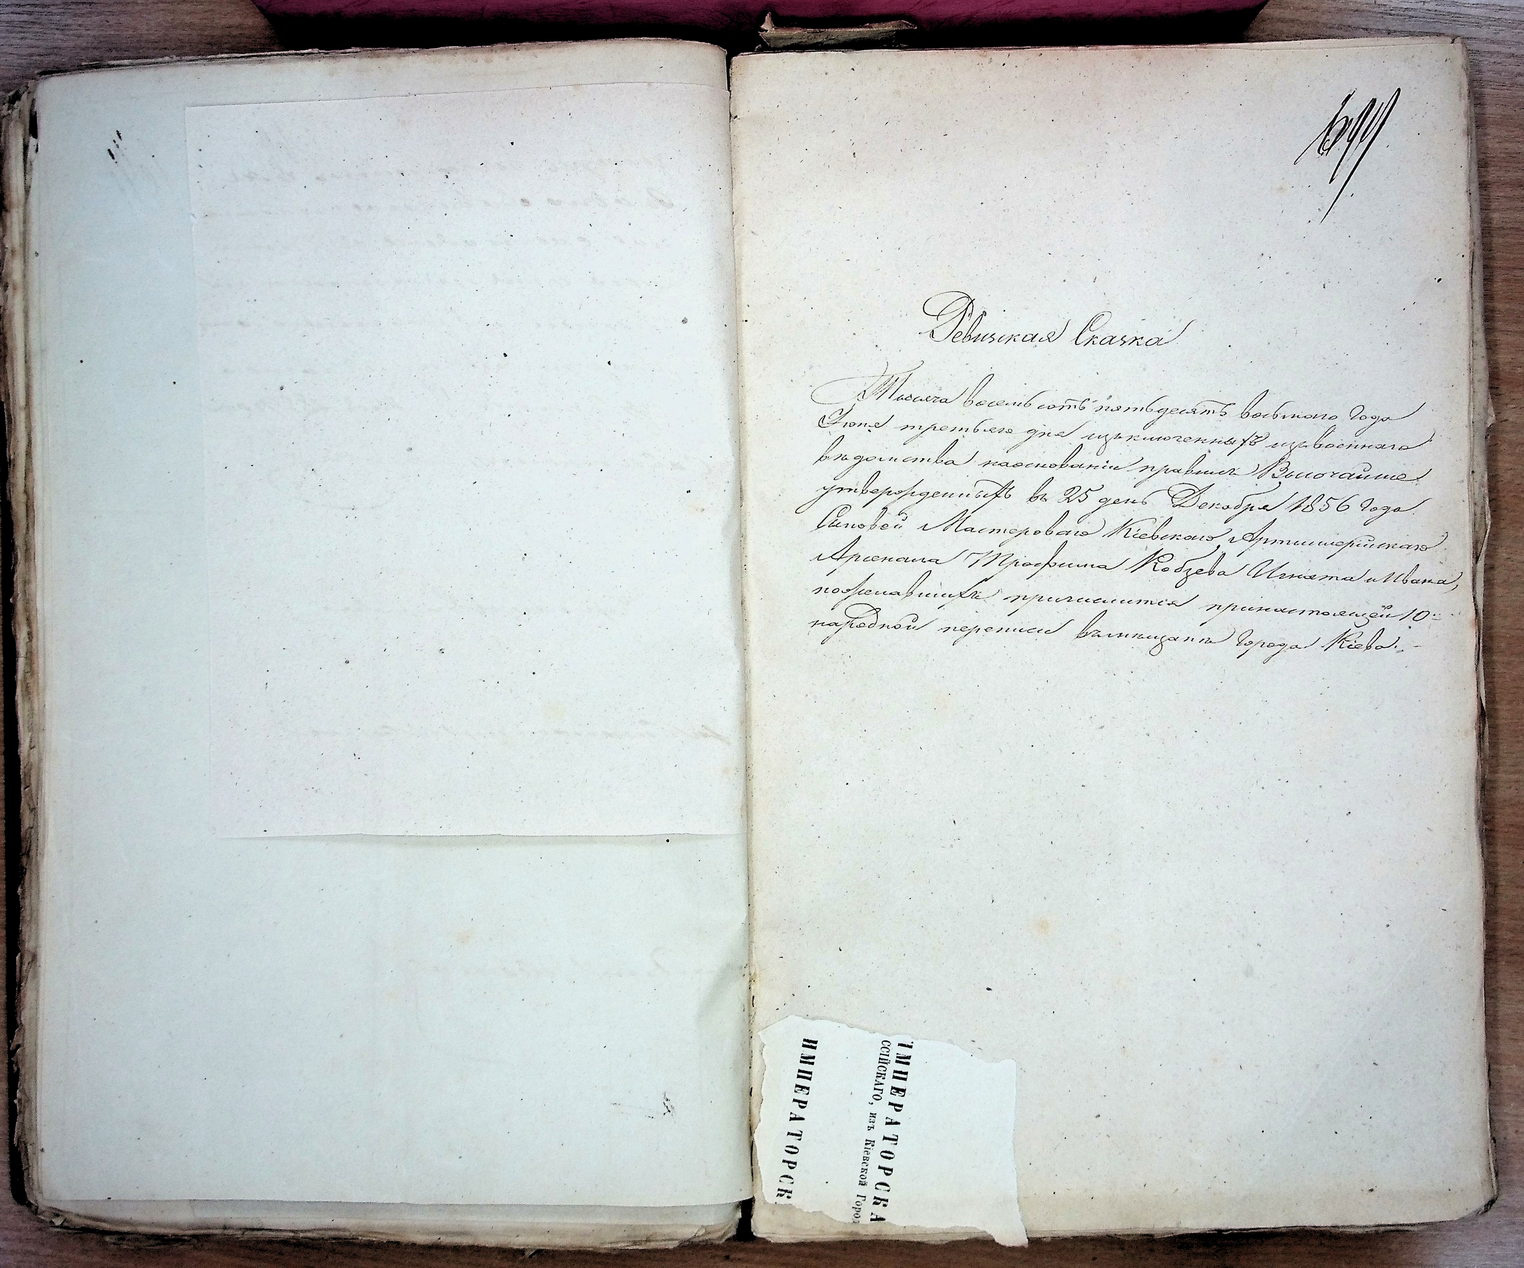 699
Ревизская Сказка
Тысяча восемьсотъ пятьдесятъ восьмаго года
Іюня третьяго дня изъключенныхъ изъ военнаго
вѣдомства наоснованіи правилъ Высочайше
утвержденныхъ въ 25 день Декабря 1856 года
Сыновей Мастероваго Кіевскаго Артиллерійскаго
Арсенала Трофима Кобзева Игната и Ивана,
пожелавшихъ причислится принастоящей 10-
народной переписи въмѣщане города Кіева.
ИМПЕРАТОРСКА
ССІЙСКАГО, изъ Кіевской Город
ИМПЕРАТОРСК